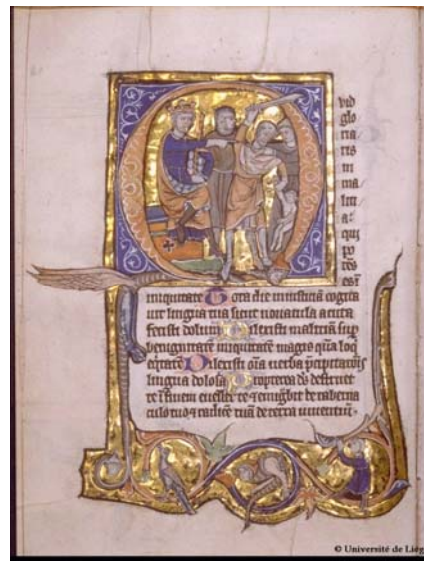 vid
glo
ria
ris
in
ma
liti
a:
qui
po
tes
est
iniquitate Tota die iniusticiā cogita
uit lingua tua sicut nouacula acuta
fecisti dolum Dilexisti maliciā sup
benignitatē iniquitatē magis quā loq
eqitatē Dilexisti oīa uerba p̄cipitatiōis
lingua dolosa Propterea ds destruet
te ī finem euellet te ⁊ emigbit te de taberna
culo tuo ⁊ radicē tuā de terra uiuentiū.
© Université de Liège